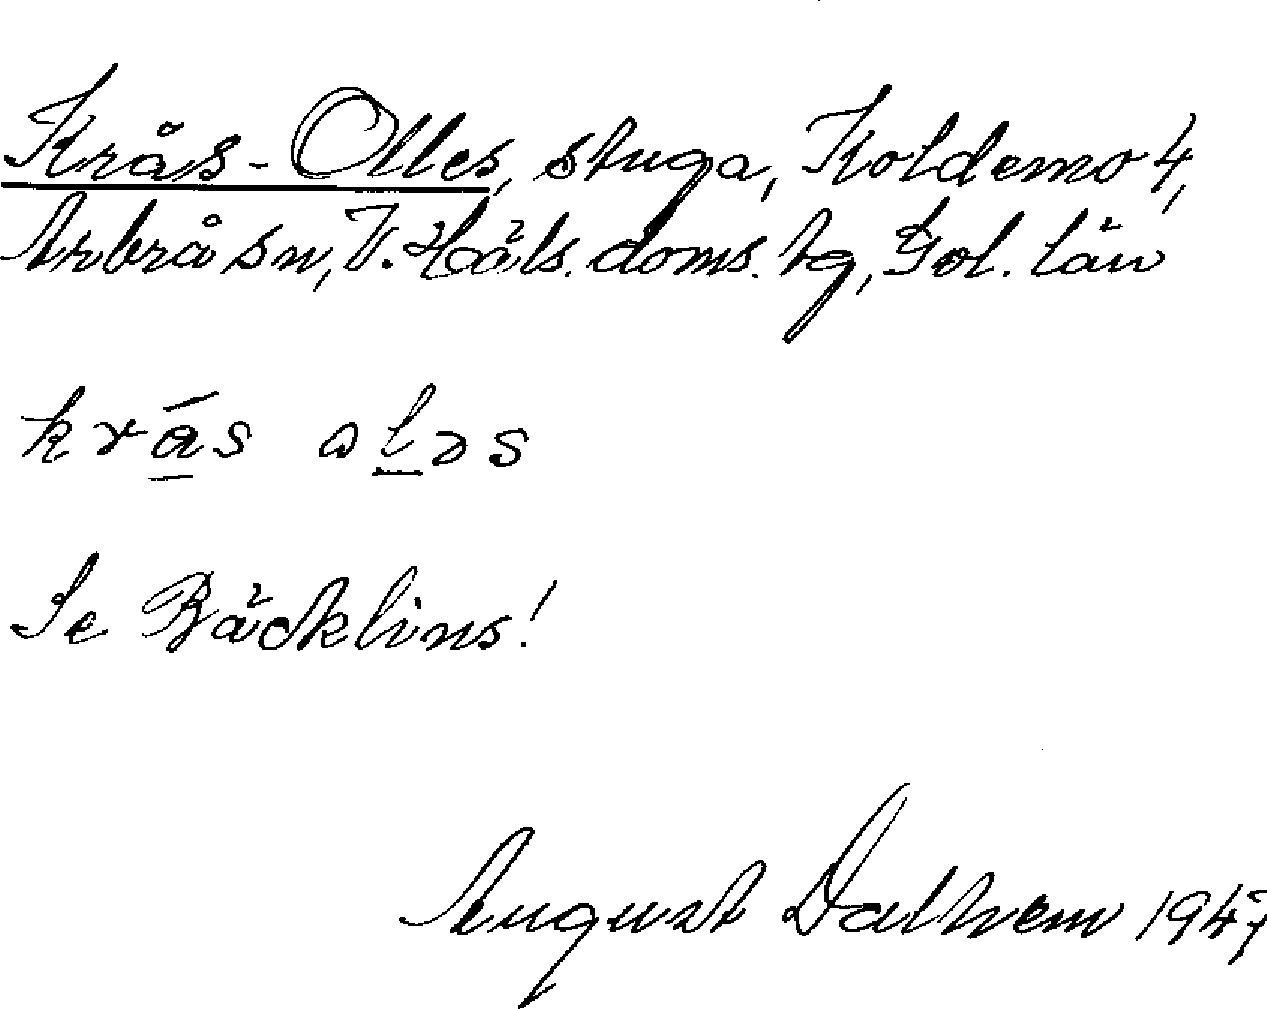 Krås-Olles, stuga, Koldemo 4,
Arbrå sn, V. Häls. doms. tg, Gol. län
krás oləs
Se Bäcklins!
August Dalhem 1947